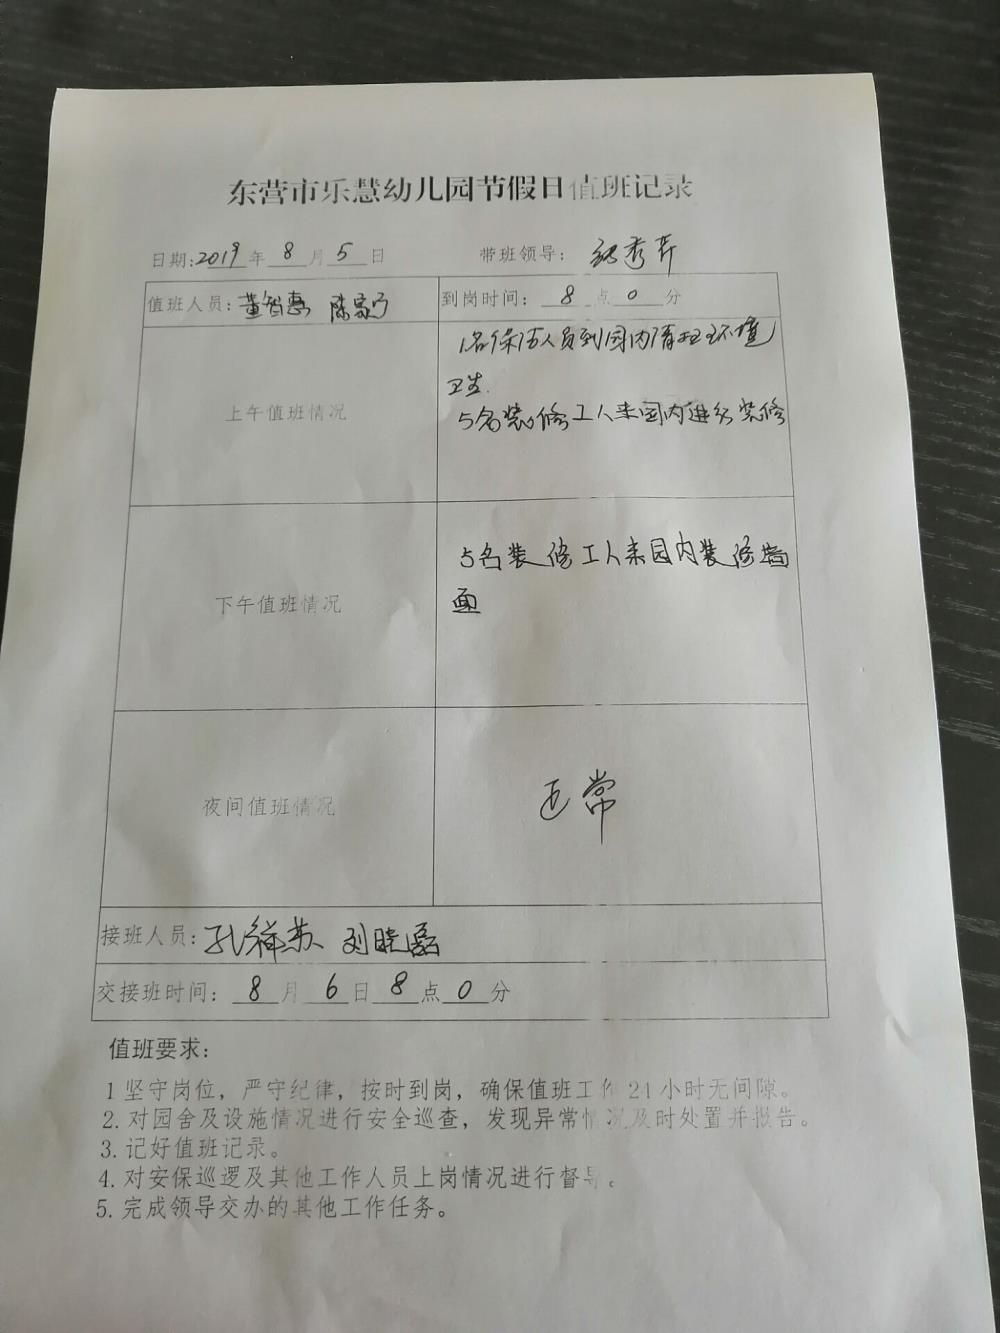 东营市乐慧幼儿园节假日值班记录
日期:2019年8月5日 带班领导:
值班人员:董智惠 陈家宁 到岗时间: 8点0分
上午值班情况
1名保洁人员到园内清理环境
卫生.
5名装修工人来园内进行装修
下午值班情况
5名装修工人来园内装修墙
面
夜间值班情况
正常
接班人员: 孔祥英 刘晓磊
交接班时间: 8月6日8点0分
值班要求:
1 坚守岗位，严守纪律，按时到岗，确保值班工作24小时无间隙。
2. 对园舍及设施情况进行安全巡查，发现异常情况及时处置并报告。
3. 记好值班记录。
4. 对安保巡逻及其他工作人员上岗情况进行督导。
5. 完成领导交办的其他工作任务。